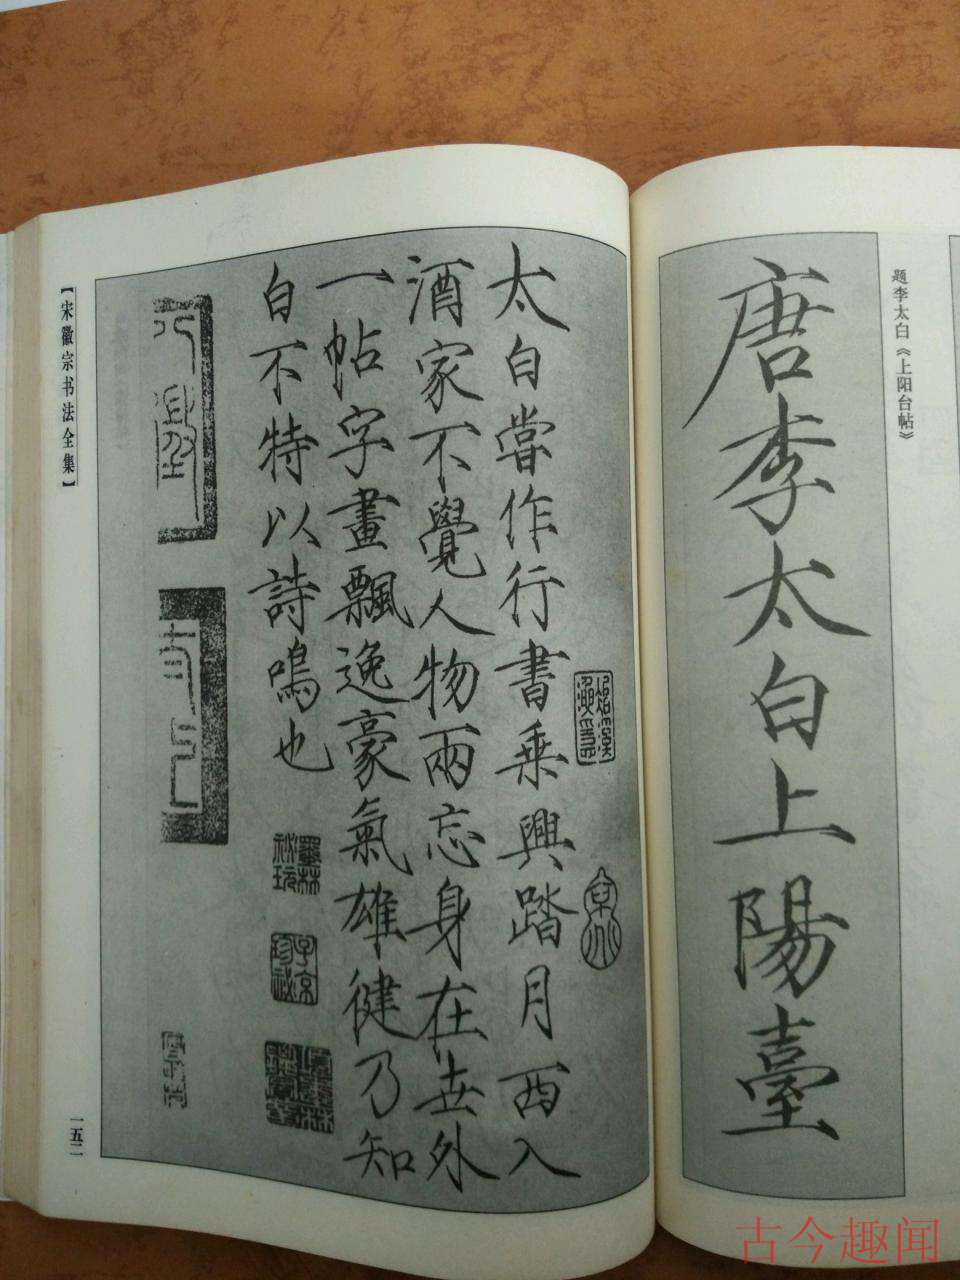 题李太白《上阳台帖》
唐李太白上陽臺
太白嘗作行書乘興踏月西入
酒家不覺人物兩忘身在世外
一帖字畫飄逸豪氣雄健乃知
白不特以詩鳴也
墨林秘玩
子京珍秘
【宋徽宗书法全集】
一五二
古今趣闻